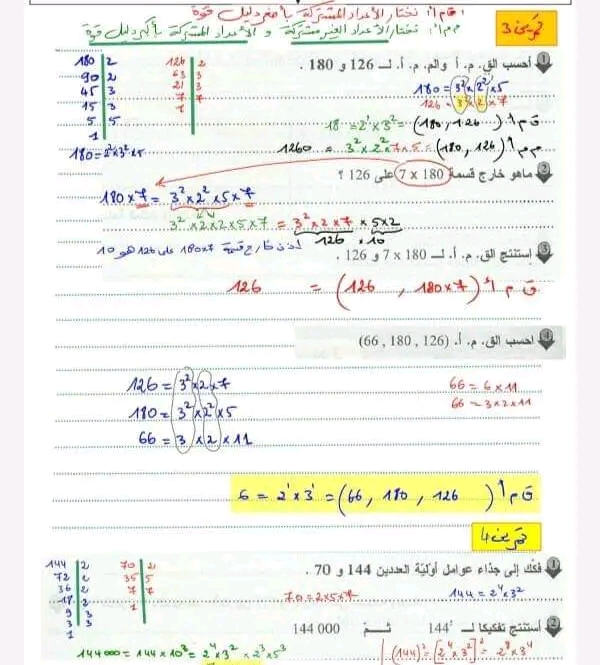 ق م أ : نختار الأعداد المشتركة بأصغر دليل قوة
م م أ : نختار الأعداد الغير مشتركة و الأعداد المشتركة بأكبر دليل قوة
تمرين 3
1 أحسب الق. م. أ والم. م. أ. لـ 126 و 180 .
180 2
90 2
45 3
15 3
5 5
1
180 = 2² x 3² x 5
126 2
63 3
21 3
7 7
1
180 = 3² x 2² x 5
126 = 3² x 2 x 7
ق م أ (180 , 126) = 3² x 2¹ = 18
م م أ (180 , 126) = 3² x 2² x 7 x 5 = 1260
2 ماهو خارج قسمة 180 x 7 على 126 ؟
180 x 7 = 3² x 2² x 5 x 7
3² x 2 x 2 x 5 x 7 = 3² x 2 x 7 x 5 x 2
126 x 10
إذن خارج قسمة 180x7 على 126 هو 10
3 إستنتج الق. م. أ. لـ 180 x 7 و 126 .
ق م أ (180 x 7 , 126) = 126
4 احسب الق. م. أ. (126 , 180 , 66)
126 = 3² x 2 x 7
180 = 3² x 2² x 5
66 = 3 x 2 x 11
66 = 6 x 11
66 = 3 x 2 x 11
ق م أ (126 , 180 , 66) = 3¹ x 2¹ = 6
تمرين 4
1 فكّك إلى جذاء عوامل أوليّة العددين 144 و 70 .
144 2
72 2
36 2
18 2
9 3
3 3
1
70 2
35 5
7 7
1
70 = 2 x 5 x 7
144 = 2⁴ x 3²
2 أستنتج تفكيكا لـ 144² ثـم 144 000
(144)² = [2⁴ x 3²]² = 2⁸ x 3⁴
144000 = 144 x 10³ = 2⁴ x 3² x 2³ x 5³